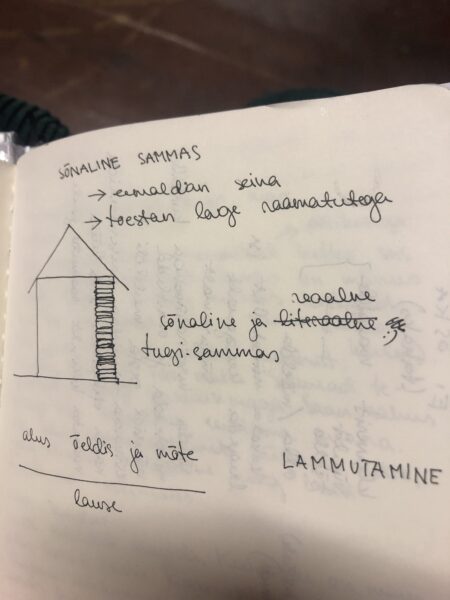 SÕNALINE SAMMAS
→ eemaldan seina
→ toestan lage raamatutega
reaalne
sõnaline ja literaalne
tugi-sammas
alus öeldis ja mõte
lause
LAMMUTAMINE